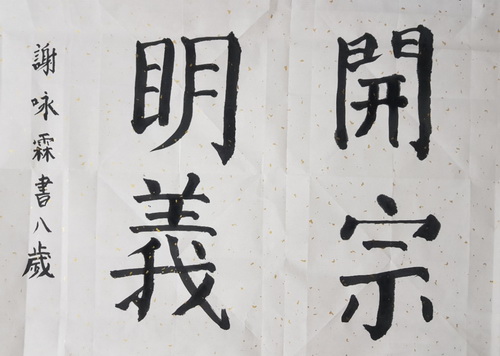 開宗
明義
謝咏霖書八歲